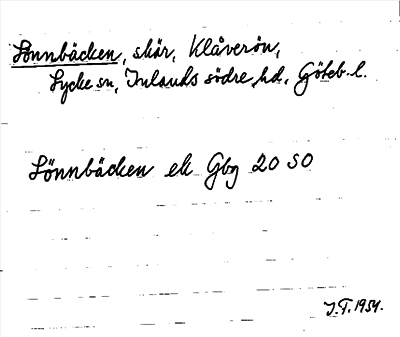 Sönnbäcken, skär, Klåverön,
Lycke sn, Inlands södre hd, Göteb. l.
Sönnbäcken ek Gbg 20 SO
J.F. 1954.